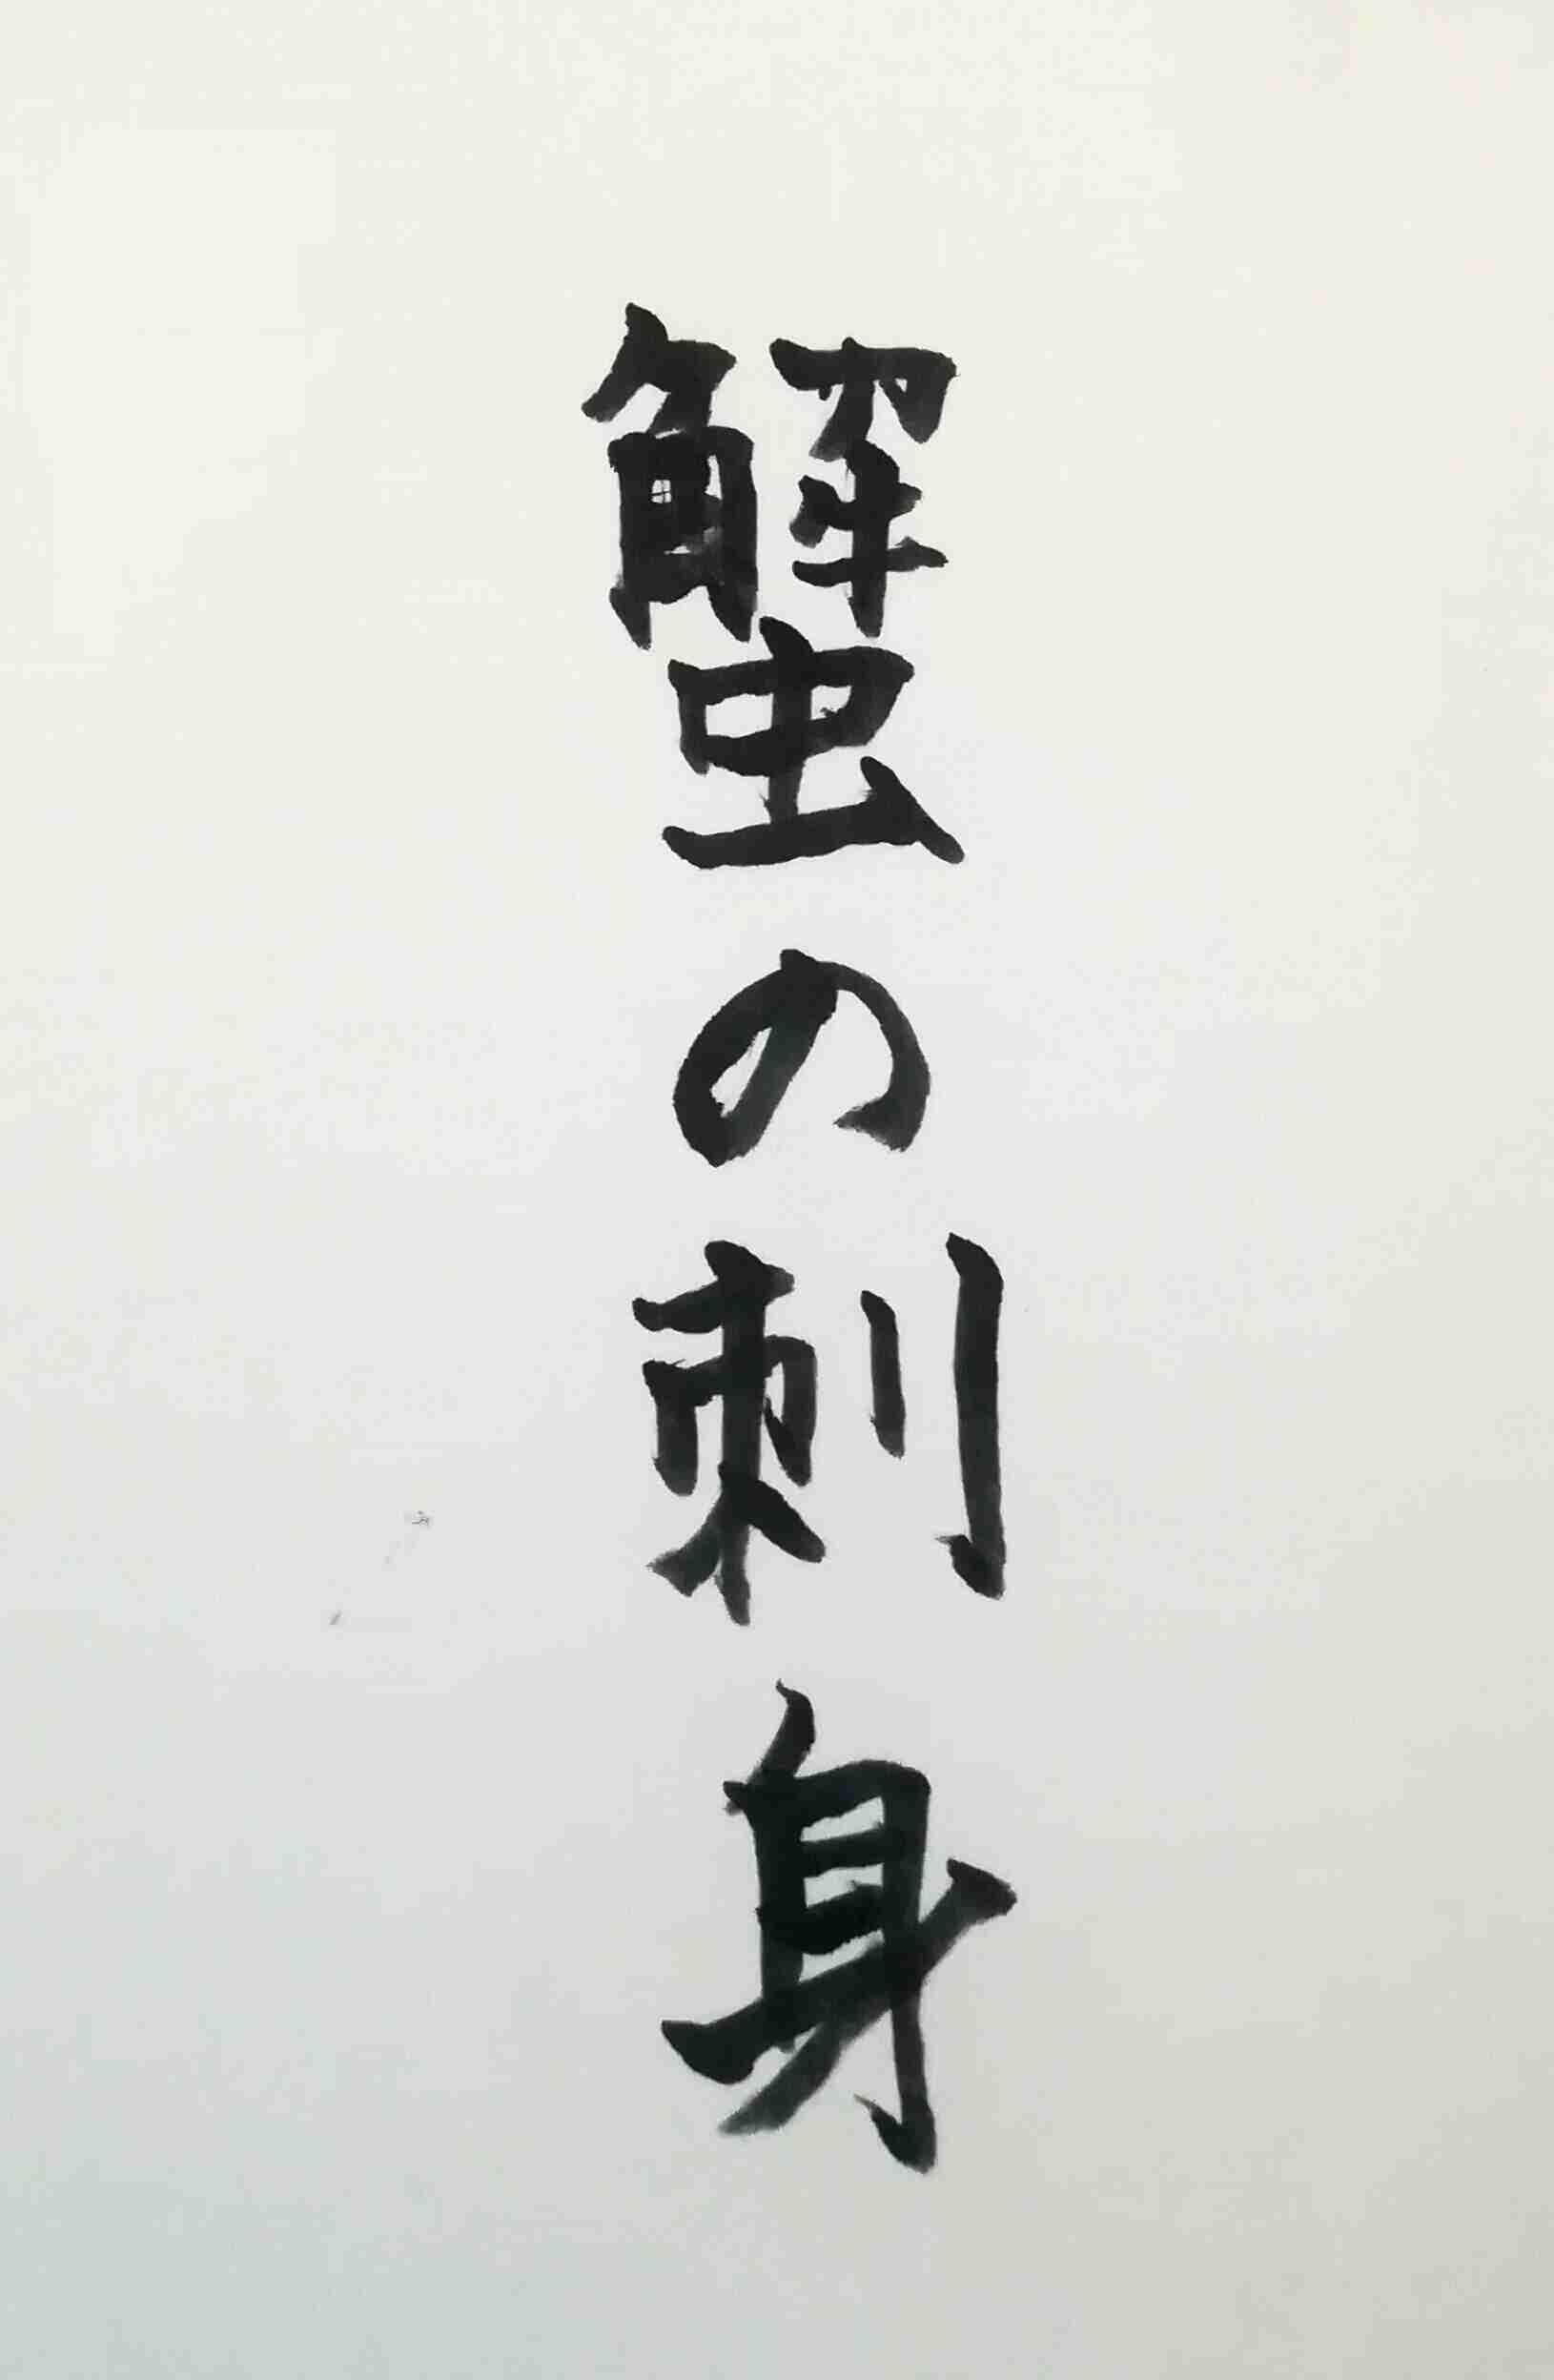 蟹の刺身